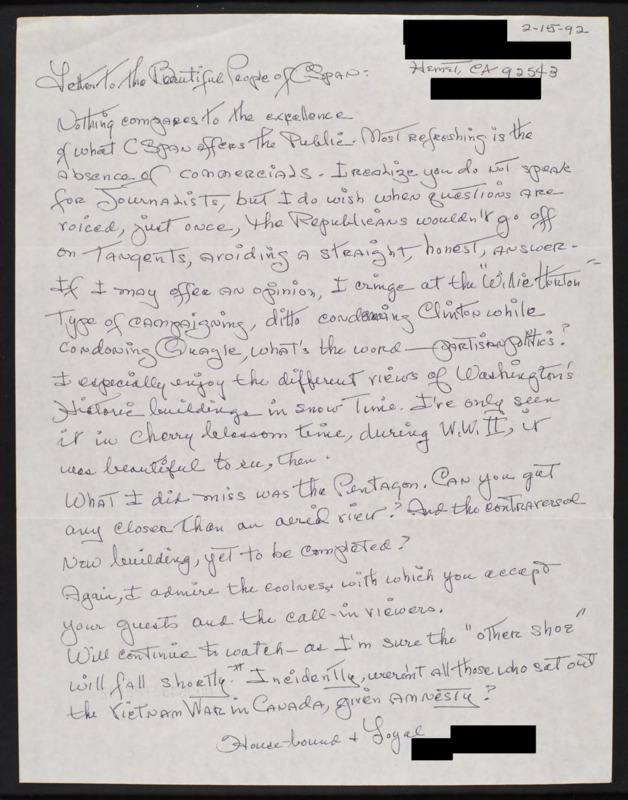 2-15-92
Hemet, CA 92543
Letter to the Beautiful People of CSpan:
Nothing compares to the excellence
of what CSpan offers the Public. Most refreshing is the
absence of commercials. I realize you do not speak
for Journalists, but I do wish when questions are
voiced, just once, the Republicans wouldn't go off
on tangents, avoiding a straight, honest, answer.
If I may offer an opinion, I cringe at the "Willie Horton"
Type of campaigning, ditto condemning Clinton while
condoning Quayle, what's the word — partisan politics?
I especially enjoy the different views of Washington's
Historic buildings in snow Time. I've only seen
it in Cherry blossom time, during W.W. II, it
was beautiful to see, then.
What I did miss was the Pentagon. Can you get
any closer than an aerial view? And the contraversal
New building, yet to be completed?
Again, I admire the coolness with which you accept
your guests and the call-in viewers.
Will continue to watch – as I'm sure the "other shoe"
will fall shortly. Incidently, weren't all those who sat out
the Vietnam War in Canada, given amnesty?
House-bound + Loyal